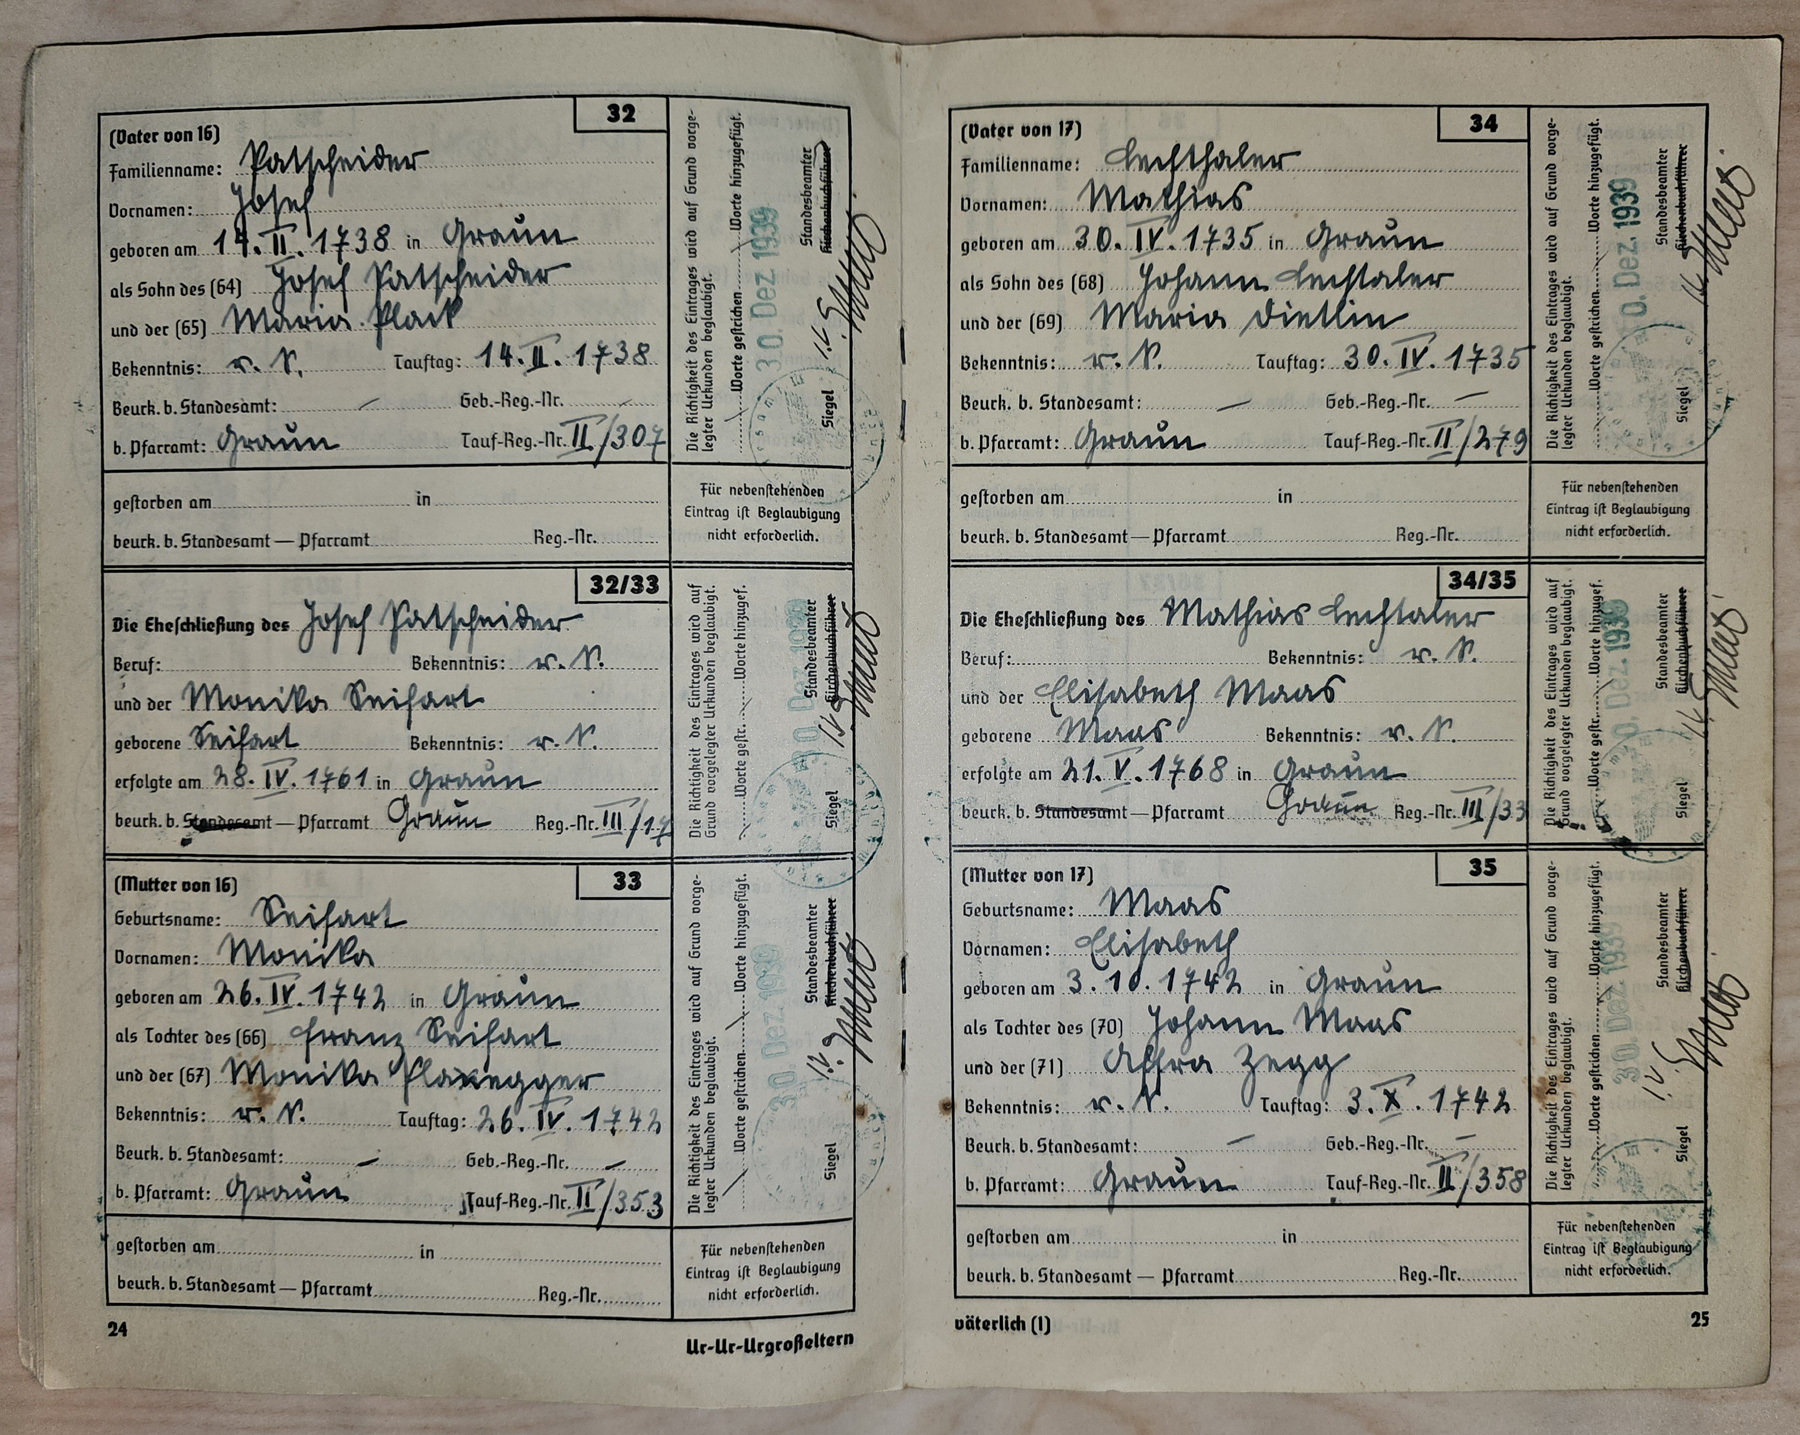 32
(Vater von 16)
Familienname: Patscheider
Vornamen: Josef
geboren am 14. II. 1738 in Graun
als Sohn des (64) Josef Patscheider
und der (65) Maria Plack
Bekenntnis: r. K. Tauftag: 14. II. 1738
Beurk. b. Standesamt: — Geb.-Reg.-Nr. —
b. Pfarramt: Graun Tauf-Reg.-Nr. II/307
Die Richtigkeit des Eintrages wird auf Grund vorge-
legter Urkunden beglaubigt.
Worte gestrichen Worte hinzugefügt.
30. Dez. 1939
Standesbeamter
Kirchenbuchführer
Siegel
i.V.
gestorben am in
beurk. b. Standesamt — Pfarramt Reg.-Nr.
Für nebenstehenden
Eintrag ist Beglaubigung
nicht erforderlich.
32/33
Die Eheschließung des Josef Patscheider
Beruf: Bekenntnis: r. K.
und der Monika Seifart
geborene Seifart Bekenntnis: r. K.
erfolgte am 28. IV. 1761 in Graun
beurk. b. Standesamt — Pfarramt Graun Reg.-Nr. III/17
Die Richtigkeit des Eintrages wird auf
Grund vorgelegter Urkunden beglaubigt.
Worte gestr. Worte hinzugef.
30. Dez. 1939
Standesbeamter
Kirchenbuchführer
Siegel
i.V.
33
(Mutter von 16)
Geburtsname: Seifart
Vornamen: Monika
geboren am 26. IV. 1742 in Graun
als Tochter des (66) Franz Seifart
und der (67) Monika Plaxegger
Bekenntnis: r. K. Tauftag: 26. IV. 1742
Beurk. b. Standesamt: — Geb.-Reg.-Nr. —
b. Pfarramt: Graun Tauf-Reg.-Nr. II/353
Die Richtigkeit des Eintrages wird auf Grund vorge-
legter Urkunden beglaubigt.
Worte gestrichen Worte hinzugefügt.
30. Dez. 1939
Standesbeamter
Kirchenbuchführer
Siegel
i.V.
gestorben am in
beurk. b. Standesamt — Pfarramt Reg.-Nr.
Für nebenstehenden
Eintrag ist Beglaubigung
nicht erforderlich.
24
Ur-Ur-Urgroßeltern
34
(Vater von 17)
Familienname: Lechthaler
Vornamen: Mathias
geboren am 30. IV. 1735 in Graun
als Sohn des (68) Johann Lechtaler
und der (69) Maria Dietlin
Bekenntnis: r. K. Tauftag: 30. IV. 1735
Beurk. b. Standesamt: — Geb.-Reg.-Nr. —
b. Pfarramt: Graun Tauf-Reg.-Nr. II/279
Die Richtigkeit des Eintrages wird auf Grund vorge-
legter Urkunden beglaubigt.
Worte gestrichen Worte hinzugefügt.
30. Dez. 1939
Standesbeamter
Kirchenbuchführer
Siegel
i.V.
gestorben am in
beurk. b. Standesamt — Pfarramt Reg.-Nr.
Für nebenstehenden
Eintrag ist Beglaubigung
nicht erforderlich.
34/35
Die Eheschließung des Mathias Lechtaler
Beruf: Bekenntnis: r. K.
und der Elisabeth Maas
geborene Maas Bekenntnis: r. K.
erfolgte am 21. V. 1768 in Graun
beurk. b. Standesamt — Pfarramt Graun Reg.-Nr. III/33
Die Richtigkeit des Eintrages wird auf
Grund vorgelegter Urkunden beglaubigt.
Worte gestr. Worte hinzugef.
30. Dez. 1939
Standesbeamter
Kirchenbuchführer
Siegel
i.V.
35
(Mutter von 17)
Geburtsname: Maas
Vornamen: Elisabeth
geboren am 3. 10. 1742 in Graun
als Tochter des (70) Johann Maas
und der (71) Affra Zegg
Bekenntnis: r. K. Tauftag: 3. X. 1742
Beurk. b. Standesamt: — Geb.-Reg.-Nr. —
b. Pfarramt: Graun Tauf-Reg.-Nr. II/358
Die Richtigkeit des Eintrages wird auf Grund vorge-
legter Urkunden beglaubigt.
Worte gestrichen Worte hinzugefügt.
30. Dez. 1939
Standesbeamter
Kirchenbuchführer
Siegel
i.V.
gestorben am in
beurk. b. Standesamt — Pfarramt Reg.-Nr.
Für nebenstehenden
Eintrag ist Beglaubigung
nicht erforderlich.
väterlich (I)
25